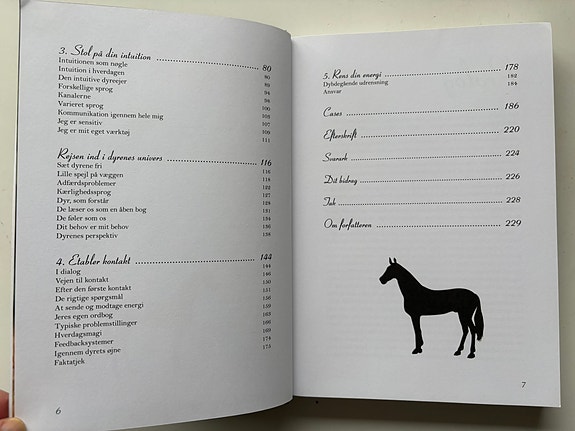 3. Stol på din intuition 80
Intuitionen som nøgle 80
Intuition i hverdagen
Den intuitive dyreejer 90
Forskellige sprog 94
Kanalerne 98
Varieret sprog
Kommunikation igennem hele mig
Jeg er sensitiv 109
Jeg er mit eget værktøj 111
Rejsen ind i dyrenes univers 116
Sæt dyrene fri 116
Lille spejl på væggen 118
Adfærdsproblemer 118
Kærlighedssprog 126
Dyr, som forstår
De læser os som en åben bog
De føler som os
Dit behov er mit behov
Dyrenes perspektiv 138
4. Etabler kontakt 144
I dialog 144
Vejen til kontakt 146
Efter den første kontakt 150
De rigtige spørgsmål
At sende og modtage energi
Jeres egen ordbog
Typiske problemstillinger
Hverdagsmagi
Feedbacksystemer
Igennem dyrets øjne
Faktatjek
6
5. Rens din energi 178
Dybdegående udrensning 182
Ansvar 184
Cases 186
Efterskrift 220
Svarark 224
Dit bidrag 226
Tak 228
Om forfatteren 229
7